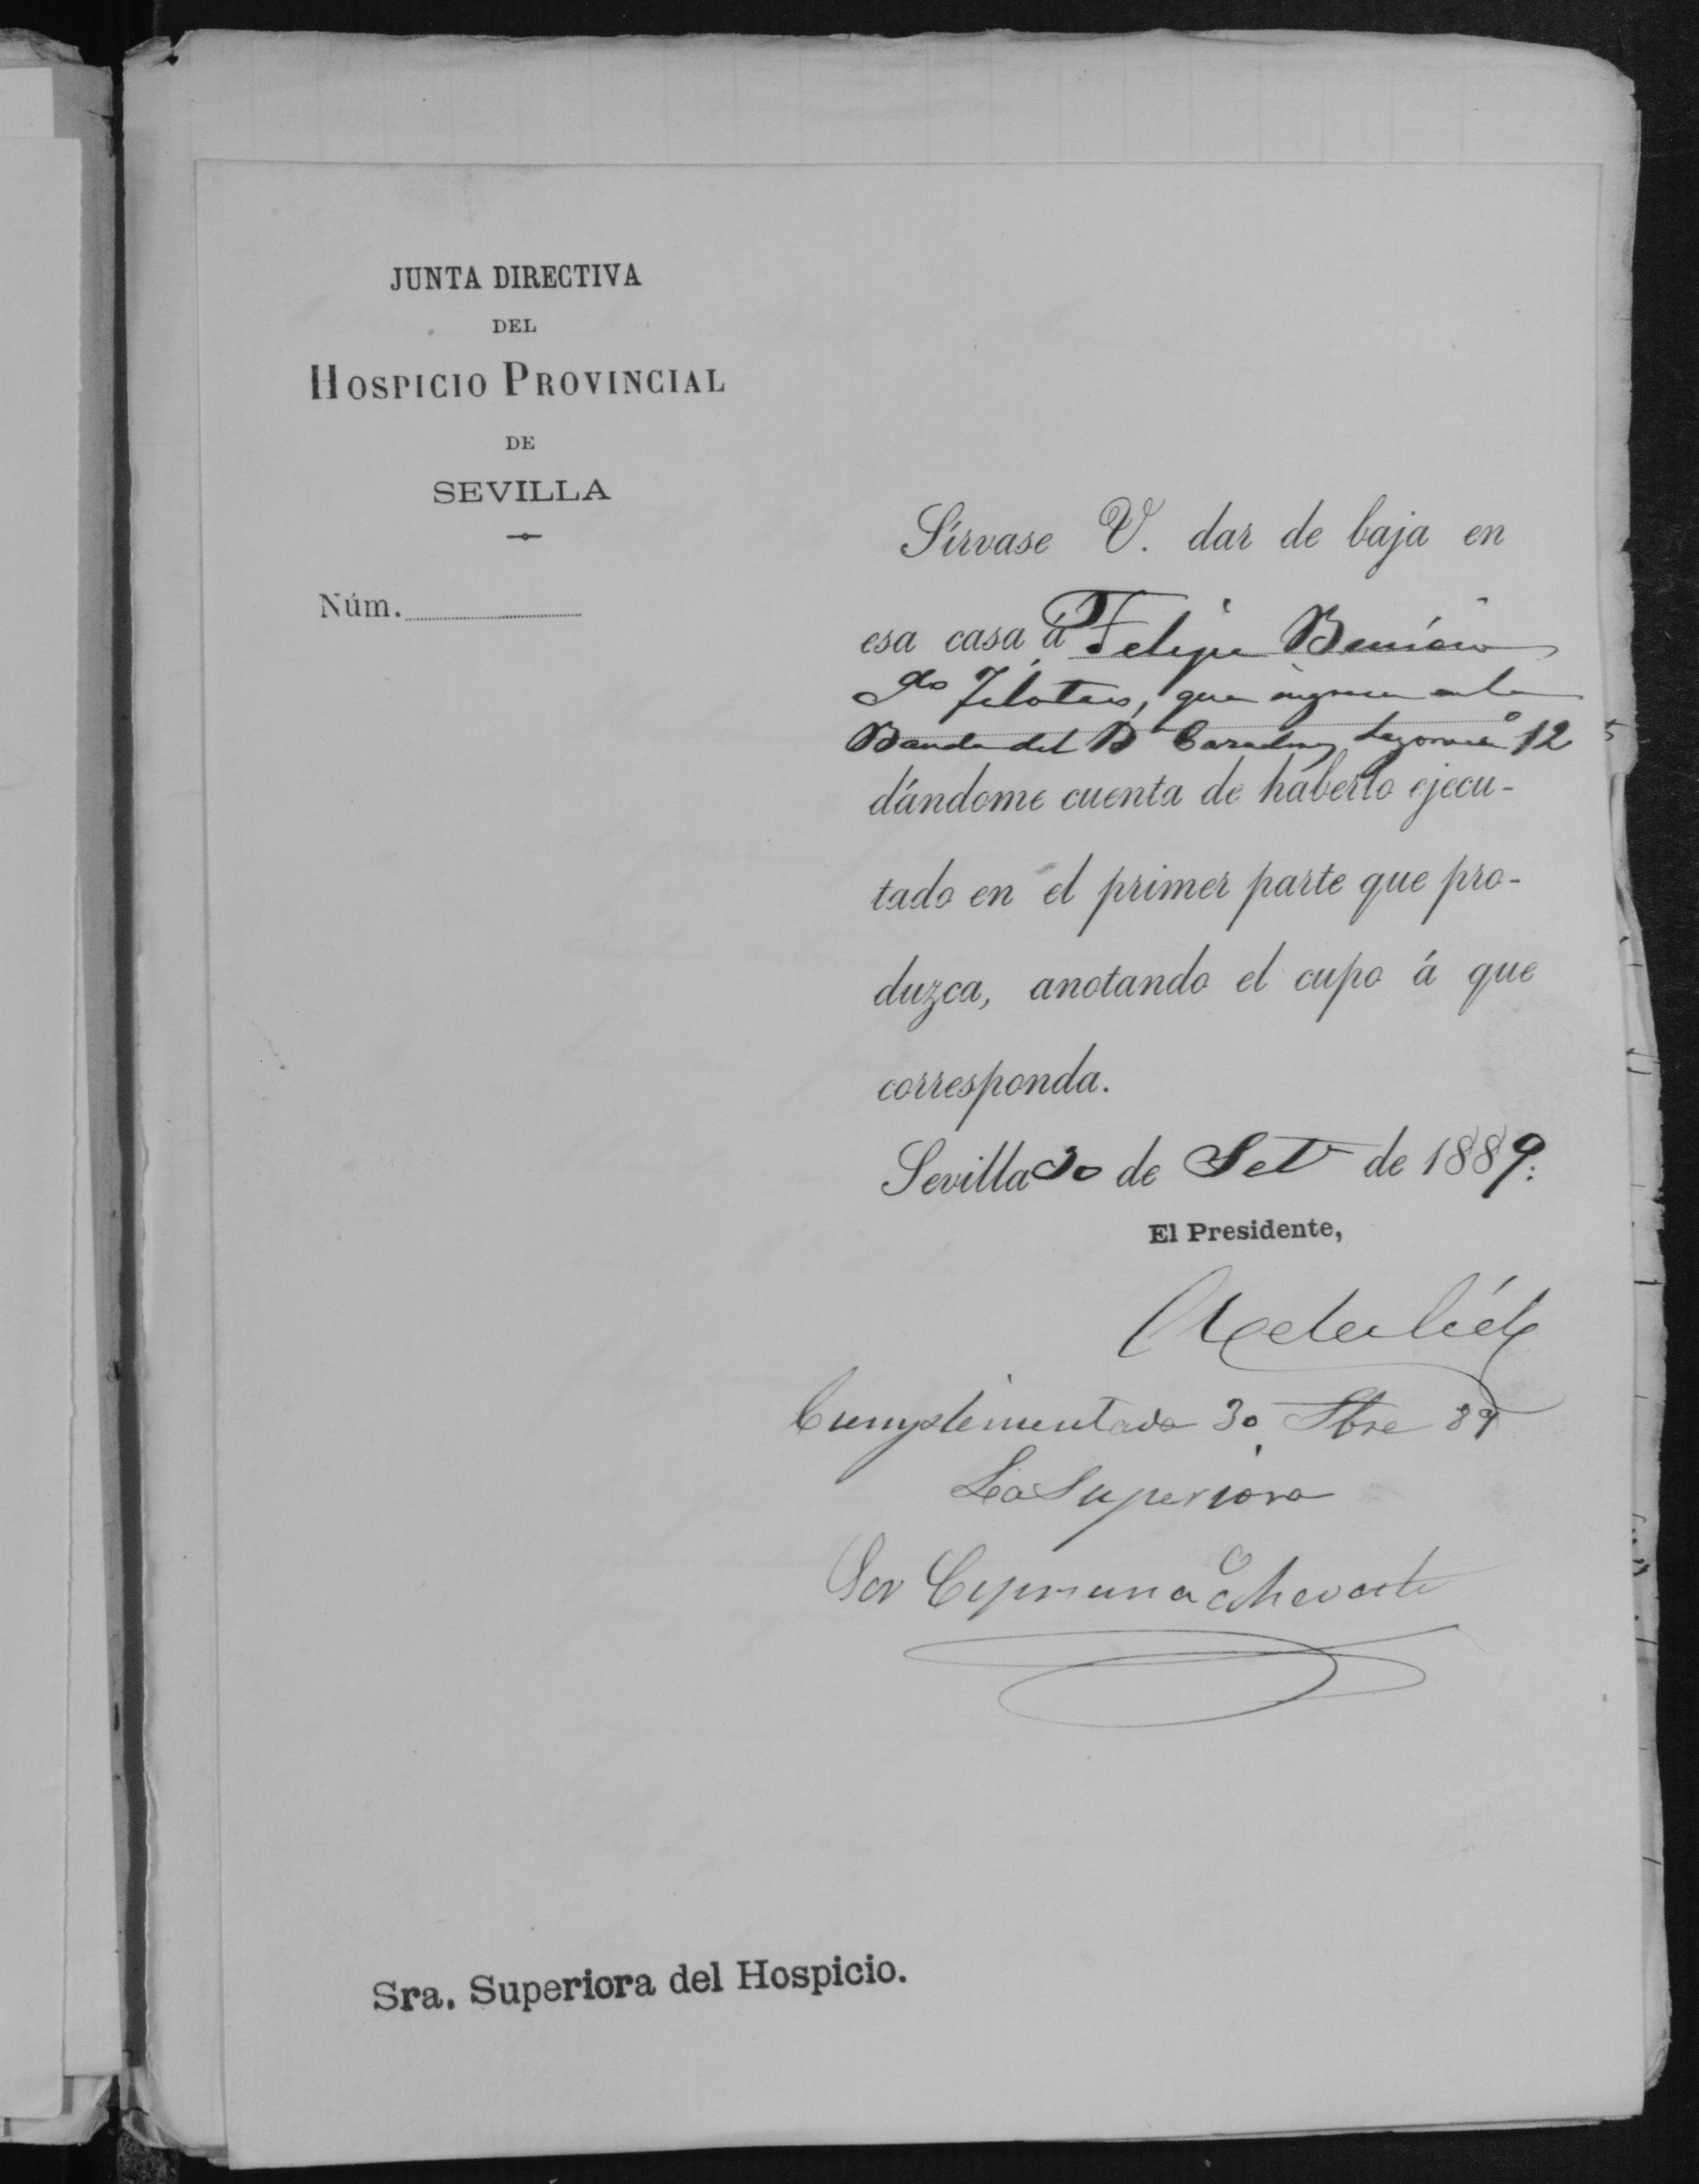 JUNTA DIRECTIVA
DEL
HOSPICIO PROVINCIAL
DE
SEVILLA
Núm.
Sírvase V. dar de baja en
esa casa á Felipe
que ingresa en la
Banda del B 12
dándome cuenta de haberlo ejecu-
tado en el primer parte que pro-
duzca, anotando el cupo á que
corresponda.
Sevilla 30 de Set de 1889.
El Presidente,
Cumplimentado 30 Stbre 89
La Superiora
Sor Cipriana
Sra. Superiora del Hospicio.